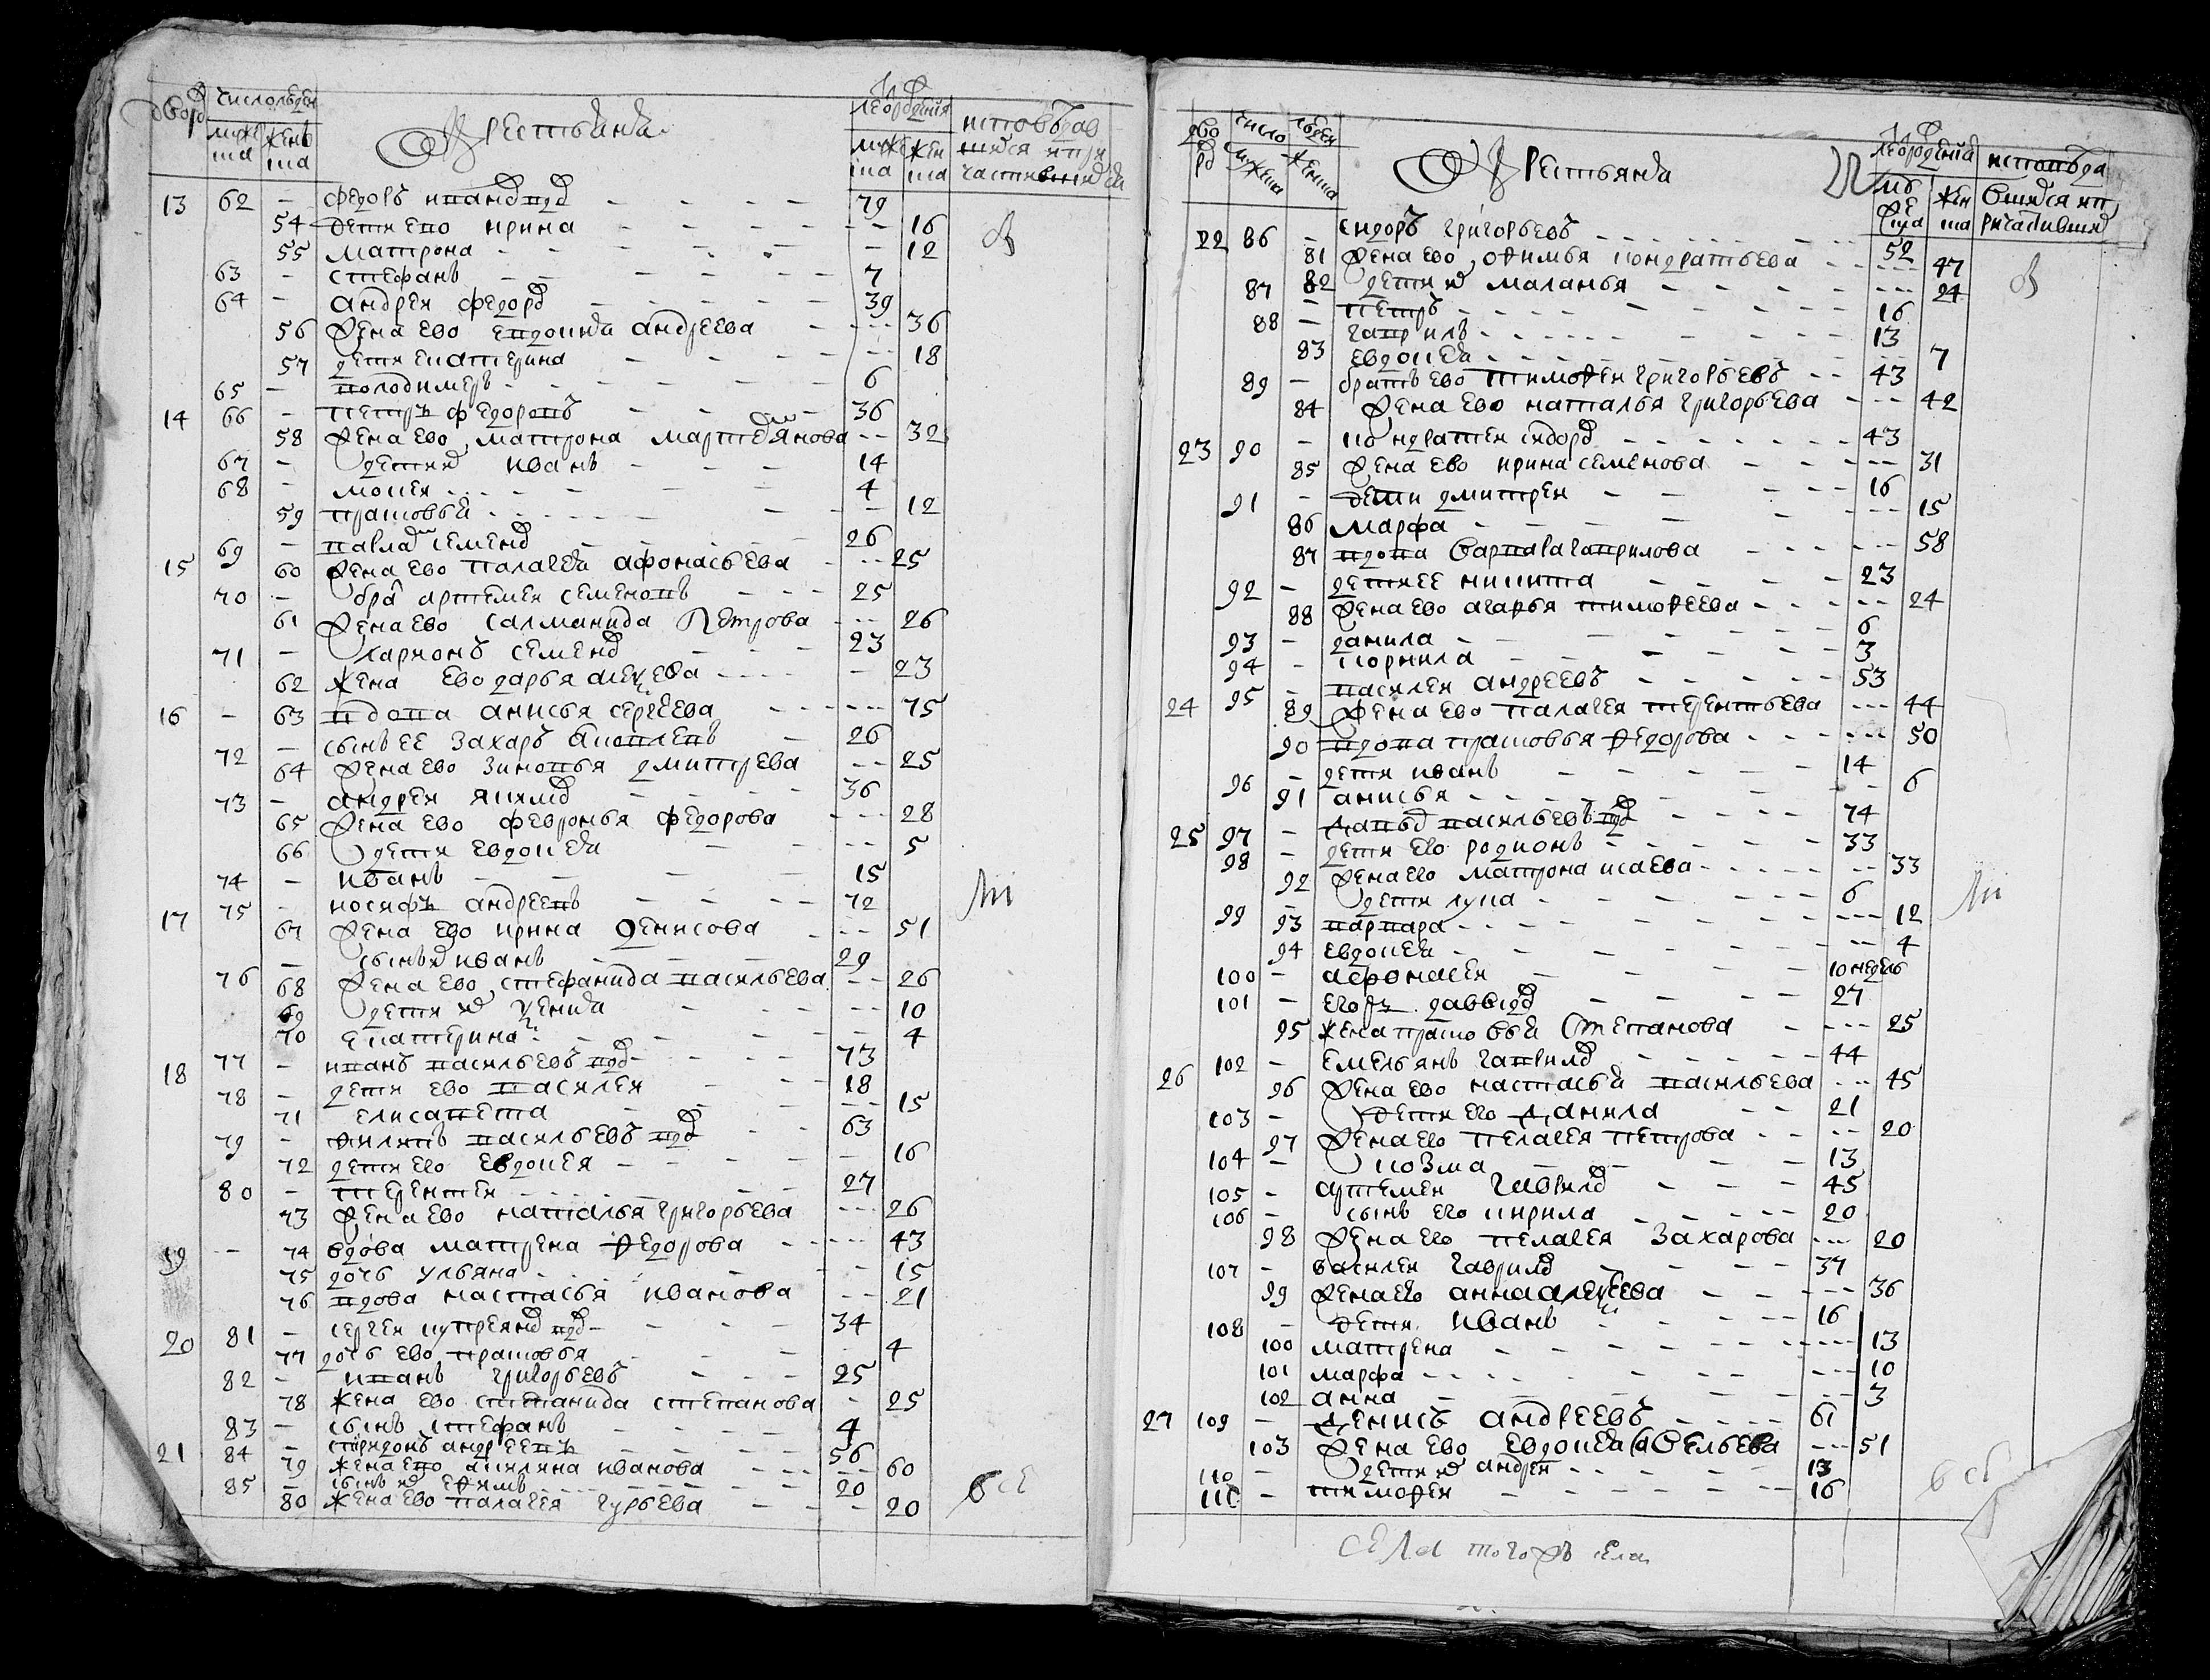 двор число людей
мужеска женска
Крестьяня
лета от рождения
мужеска женска
исповедавшияся и причастившияся
13 62 – федоръ иванов вдов 79
54 дети ево ирина 16
55 матрона 12
63 – стефанъ 7
64 – андреи федоров 39
56 жена ево евдокия андреева 36
57 дети екатерина 18
65 – володимеръ 6
14 66 – петръ федоровъ 36
58 жена ево матрона мартемянова 32
67 – дети их иванъ 14
68 – мокеи 4
59 прасковья 12
15 69 – павла семенов 26
60 жена ево палагея афонасьева 25
70 – бра артемеи семеновъ 25
61 жена ево салманида петрова 26
71 – ларионъ семенов 23
62 жена ево дарья алексеева 23
16 – 63 вдова анисья сергеева 75
72 – сынъ ее захаръ 26
64 жена ево зиновья дмитрева 25
73 – андреи якимов 36
65 жена ево февронья федорова 28
66 дети евдокея 5
74 – иванъ 15
17 75 – иосифъ андреевъ 72
67 жена ево ирина денисова 51
76 – сынъ их иванъ 29
68 жена ево стефанида васильева 26
69 дети их ксения 10
70 екатерина 4
18 77 – иванъ васильевъ вдов 73
78 – дети ево василеи 18
71 елисавета 15
79 – филипъ васильевъ вдов 63
72 дети его евдокея 16
80 – терентеи 27
73 жена ево наталья григорьева 26
19 – 74 вдова матрена федорова 43
75 дочь ульяна 15
76 вдова настасья иванова 21
20 81 – сергеи куприянов вдов 34
77 дочь ево прасковья 4
82 – иванъ григорьевъ 25
78 жена ево степанида степанова 25
83 – сынъ стефанъ 4
21 84 – спиридонъ андреевъ 56
79 жена ево акилина иванова 60
85 – сынъ их ефимъ 20
80 жена ево палагея гурьева 20
все
двор число людей
мужеска женска
Крестьяня
лета от рождения
мужеска женска
исповедавшияся и причастившия
22 86 – сидоръ григорьевъ 52
81 жена ево офимья кондратьева 47
82 дети их маланья 24
87 – петръ 16
88 – гаврилъ 13
83 евдокея 7
89 – братъ ево тимофеи григорьевъ 43
84 жена ево наталья григорьева 42
23 90 – кондратеи сидоров 43
85 жена ево ирина семенова 31
91 – дети дмитреи 16
86 марфа 15
87 вдова варвара гаврилова 58
92 – дети ее никита 23
88 жена ево агафья тимофеева 24
93 – данила 6
94 – корнила 3
24 95 – василеи андреевъ 53
89 жена ево палагея терентьева 44
90 вдова прасковья федорова 50
96 – дети иванъ 14
91 анисья 6
25 97 – давыд васильевъ вдов 74
98 – дети ево родионъ 33
92 жена его матрона исаева 33
99 – дети лука 6
93 варвара 12
94 евдокея 4
100 – афонасеи 10 недель
101 – егоръ давыдов 27
95 жена прасковья степанова 25
26 102 – емельянъ гаврилов 44
96 жена ево настасья васильева 45
103 – дети его данила 21
97 жена его пелагея петрова 20
104 – козма 13
105 – артемеи гаврилов 45
106 – сынъ его кирила 20
98 жена его пелагея захарова 20
107 – василеи гаврилов 37
99 жена его анна алексеева 36
108 – дети иванъ 16
100 матрена 13
101 марфа 10
102 анна 3
27 109 – денисъ андреевъ 61
103 жена ево евдокея савельева 51
110 – дети их андреи 13
111 – тимофеи 16
все
села тогожъ села